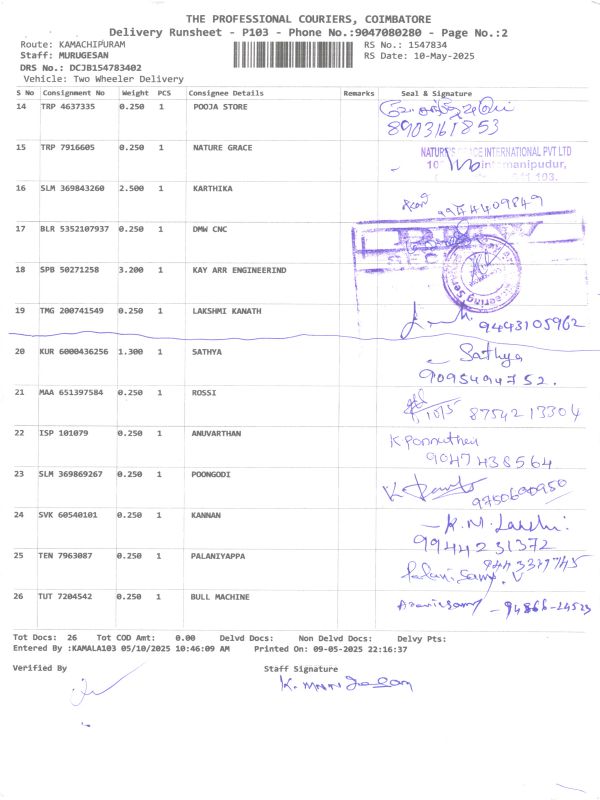 THE PROFESSIONAL COURIERS, COIMBATORE
Delivery Runsheet - P103 - Phone No.:9047080280 - Page No.:2
Route: KAMACHIPURAM
Staff: MURUGESAN
DRS No.: DCJB154783402
Vehicle: Two Wheeler Delivery
RS No.: 1547834
RS Date: 10-May-2025
S No Consignment No Weight PCS Consignee Details Remarks Seal & Signature
14 TRP 4637335 0.250 1 POOJA STORE
8903161853
15 TRP 7916605 0.250 1 NATURE GRACE
INTERNATIONAL PVT LTD
16 SLM 369843260 2.500 1 KARTHIKA
17 BLR 5352107937 0.250 1 DMW CNC
18 SPB 50271258 3.200 1 KAY ARR ENGINEERIND
19 TMG 200741549 0.250 1 LAKSHMI KANATH
9443105962
20 KUR 6000436256 1.300 1 SATHYA Sathya
9095494752.
21 MAA 651397584 0.250 1 ROSSI 10/5 8754213304
22 ISP 101079 0.250 1 ANUVARTHAN
9047438564
23 SLM 369869267 0.250 1 POONGODI
9750690950
24 SVK 60540101 0.250 1 KANNAN
9944231372
25 TEN 7963087 0.250 1 PALANIYAPPA
26 TUT 7204542 0.250 1 BULL MACHINE
Tot Docs: 26 Tot COD Amt: 0.00 Delvd Docs: Non Delvd Docs: Delvy Pts:
Entered By :KAMALA103 05/10/2025 10:46:09 AM Printed On: 09-05-2025 22:16:37
Verified By Staff Signature